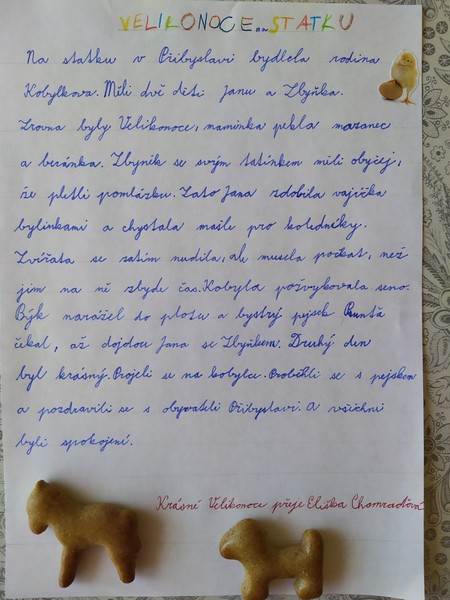 VELIKONOCE na STATKU
Na statku v Přibyslavi bydlela rodina
Kobylkova. Měli dvě děti Janu a Zbyňka.
Zrovna byly Velikonoce, maminka pekla mazanec
a beránka. Zbyněk se svým tatínkem měli obyčej,
že pletli pomlázku. Zato Jana zdobila vajíčka
bylinkami a chystala mašle pro koledníky.
Zvířata se zatím nudila, ale musela počkat, než
jim na ně zbyde čas. Kobyla požvykovala seno.
Býk narážel do plotu a bystrý pejsek Puntă
čekal, až dojdou Jana se Zbyňkem. Druhý den
byl krásný. Projeli se na kobylce. Proběhli se s pejskem
a pozdravili se s obyvateli Přibyslavi. A všichni
byli spokojení.
Krásné Velikonoce přeje Eliška Chomradová